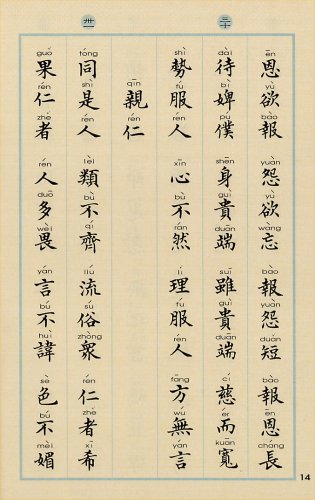 三十
ēn yù bào yuàn yù wàng bào yuàn duǎn bào ēn cháng
恩欲報 怨欲忘 報怨短 報恩長
dài bì pú shēn guì duān suī guì duān cí ér kuān
待婢僕 身貴端 雖貴端 慈而寬
shì fú rén xīn bù rán lǐ fú rén fāng wú yán
勢服人 心不然 理服人 方無言
qīn rén
親仁
tóng shì rén lèi bù qí liú sú zhòng rén zhě xī
同是人 類不齊 流俗衆 仁者希
guǒ rén zhě rén duō wèi yán bú huì sè bú mèi
果仁者 人多畏 言不諱 色不媚
14